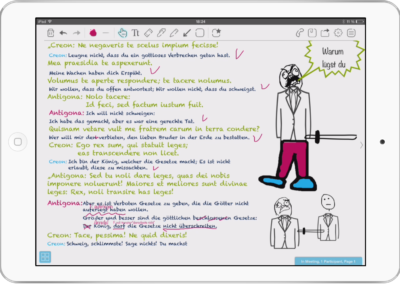 „Creon: Ne negaveris te scelus impium fecisse!
Creon: Leugne nicht, dass du ein gottloses Verbrechen getan hast.
Mea praesidia te aspexerunt.
Meine Wachen haben dich Erspäht.
Volumus te aperte respondere; te tacere nolumus.
Wir wollen, dass du offen antwortest; Wir wollen nicht, dass du schweigst.
Antigona: Nolo tacere:
Id feci, sed factum iustum fuit.
Antigona: Ich will nicht schweigen:
Ich habe das gemacht, aber es war eine gerechte Tat.
Quisnam vetare vult me fratrem carum in terra condere?
Wer will mir den lieben Bruder in der Erde zu bestatten.
Creon: Ego rex sum, qui statuit leges;
eas transcendere non licet.
Creon: Ich bin der König, welcher die Gesetze macht; Es ist nicht
erlaubt, diese zu missachten.
„Antigona: Sed tu noli dare leges, quas dei nobis
imponere noluerunt! Maiores et meliores sunt divinae
leges: Rex, noli transire has leges!
Antigona: Aber es ist Verboten Gesetze zu geben, die die Götter nicht
auferlegt haben wollen.
Größer und besser sind die göttlichen Gesetze:
König, darf die Gesetze nicht überschreiten.
Creon: Tace, pessima! Ne quid dixeris!
Creon: Schweig, schlimmste! Sage nichts! Du machst
Warum
lügst du